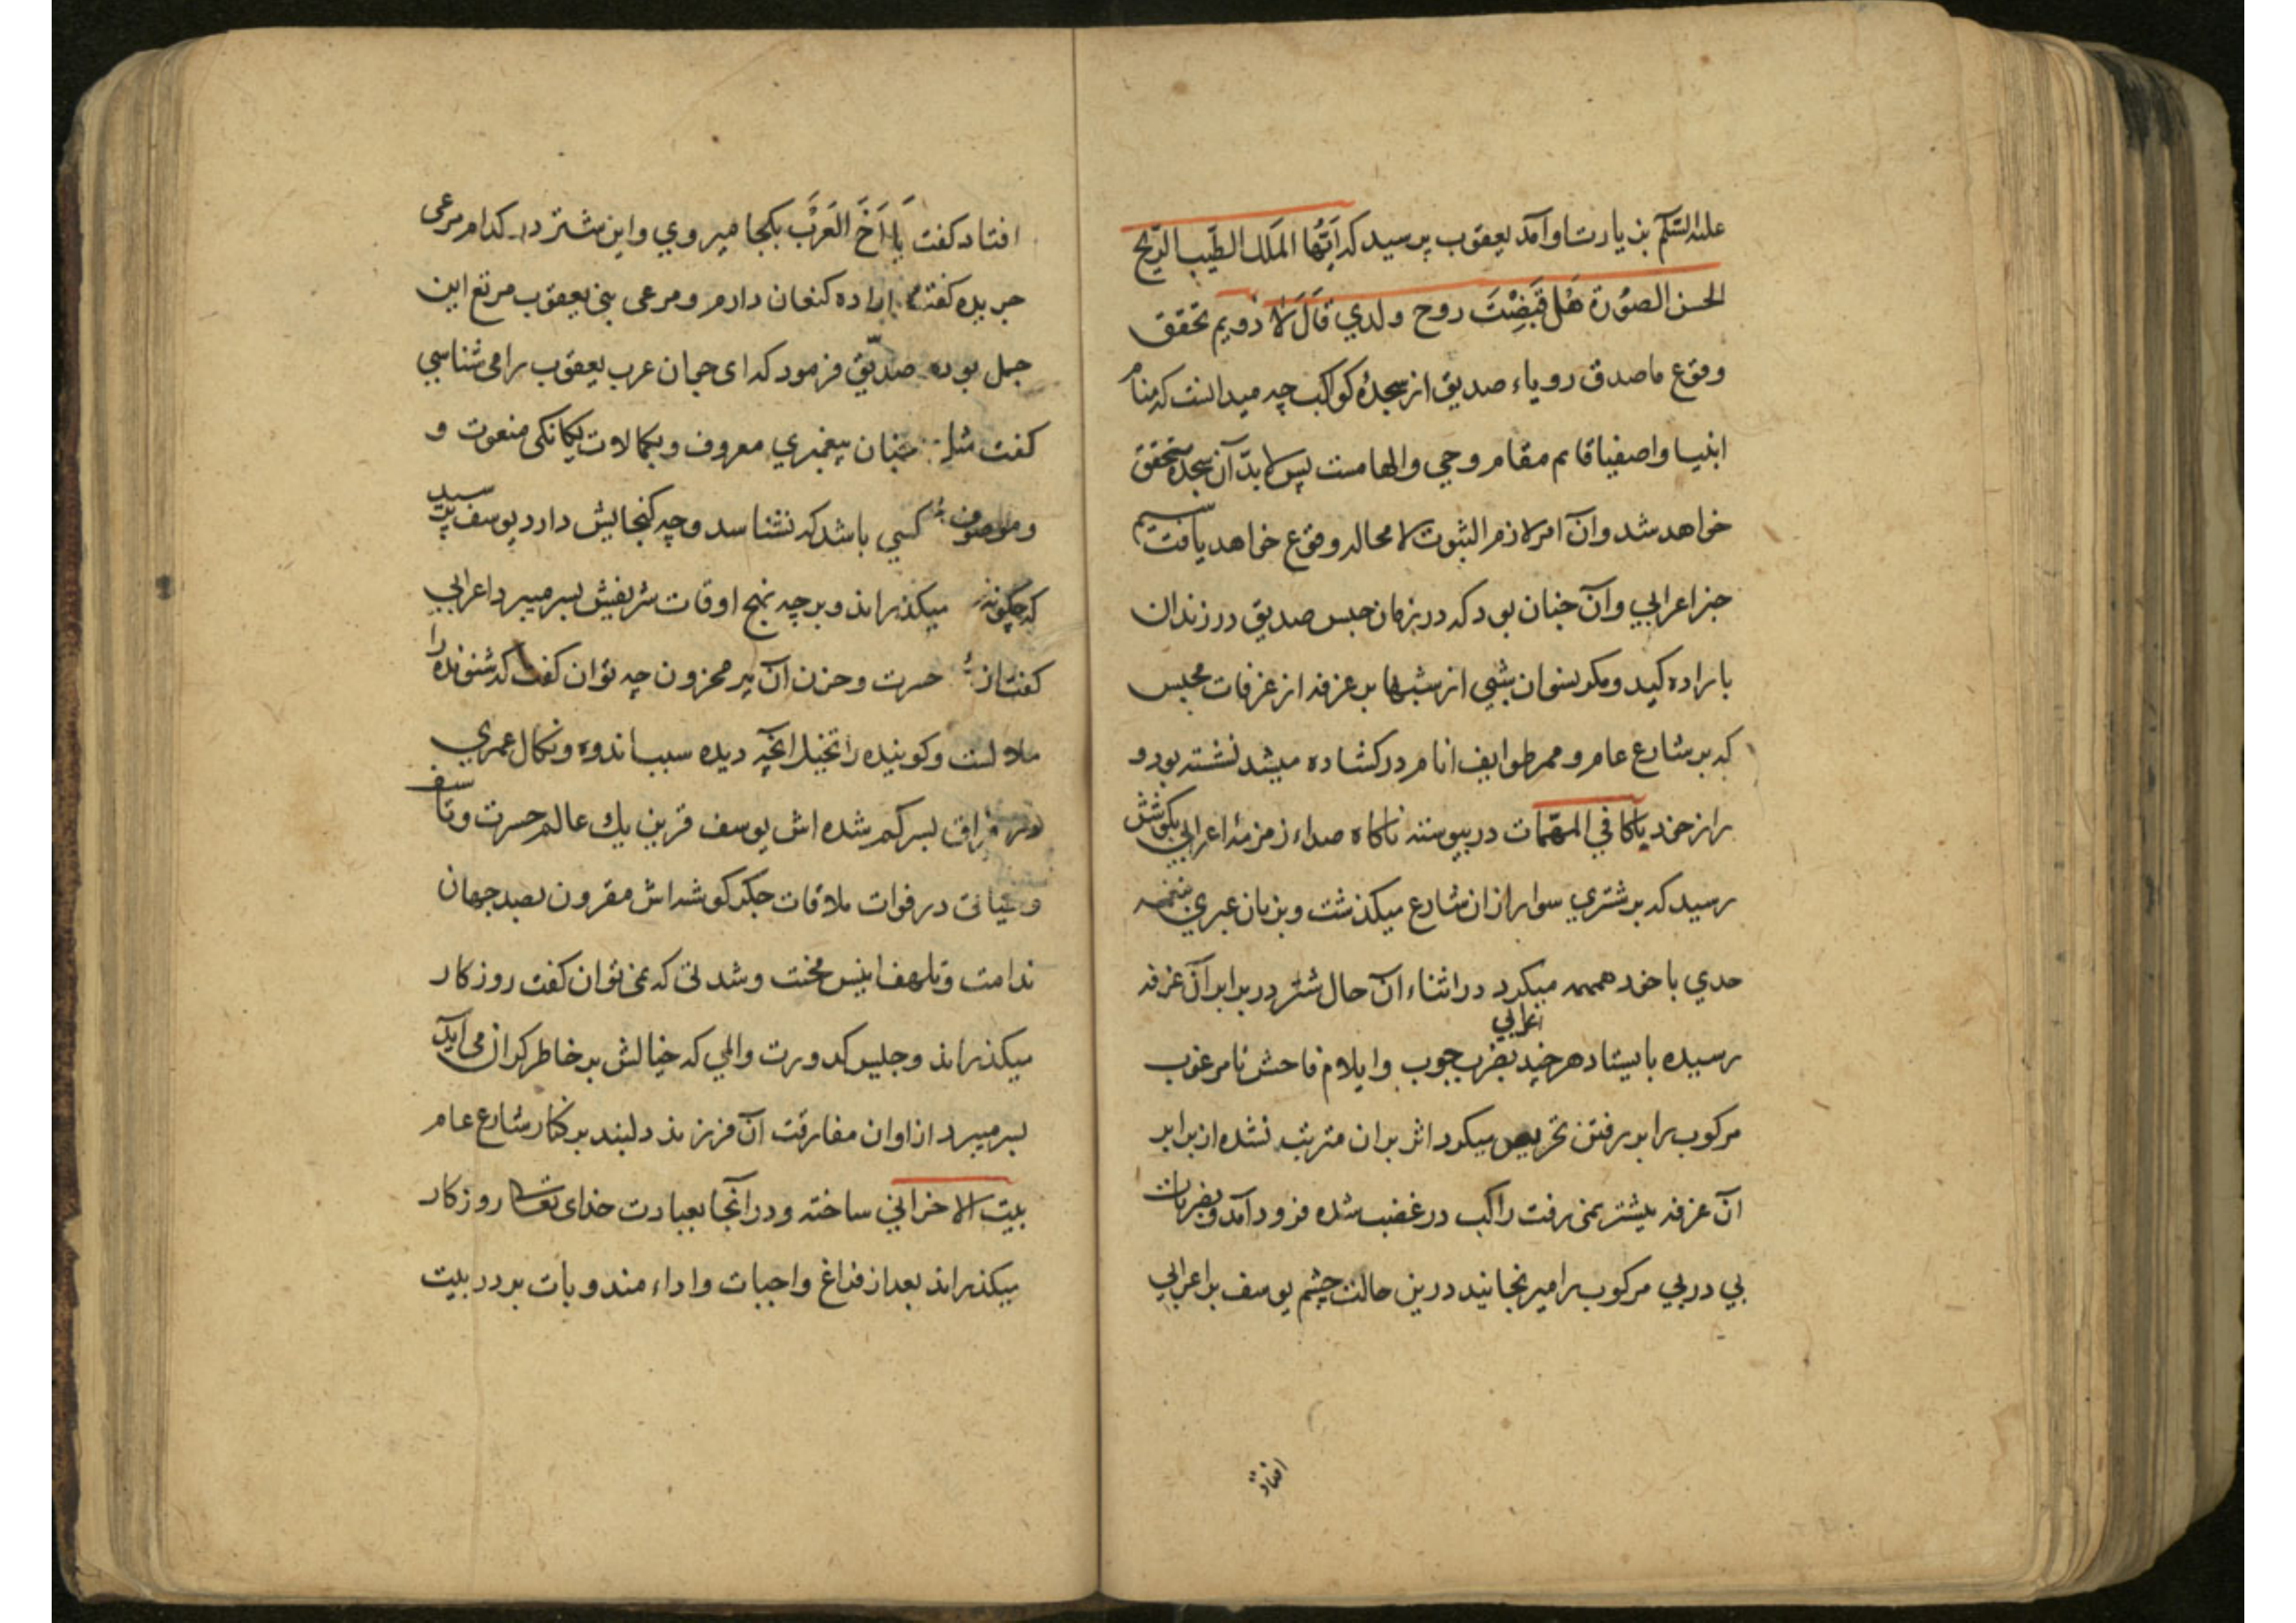 علیه السّلام بزیارت او آمد یعقوب پرسید که اَیُّهَا المَلَک الطیّب الرّیح
الحسن الصُوُرة هَل قَبَضْتَ روح ولدي قَالَ لَا دویم تحقق
وقوع ماصدق رویاء صدیق از سجدۀ کواکب چه میدانست که منام
انبیا و اصفیا قایم مقام وحي والهامست پس لابدّ آن سجده متحقق
خواهد شد وآن امر لازم الثبوت لا محاله وقوع خواهد یافت سیم
خبر اعرابي وآن چنان بود که در زمان حبس صدیق در زندان
باراده کید ومکر نسوان شبي از شبها بر غرفه از غرفات محبس
که بر شارع عام و ممر طوایف انام در کشاده میشد نشسته بود و
راز خود با کافي المهمّات در پیوسته ناکاه صداء زمزمۀ اعرابي بکوشش
رسید که بر شتري سوار ازان شارع میکذشت وبزبان عبري نغمه
حدي باخود همهمه میکرد در اثناء آن حال شتر در برابر آن غرفه
رسیده بایستاد هر چند اعرابي بضرب چوب وایلام فاحش نا مرغوب
مرکوب را بر رفتن تحریص میکرد اثر بران مترتب نشده از برابر
آن غرفه پیشتر نمی رفت راکب در غضب شده فرود آمد وبضربات
پي در پي مرکوب را میرنجانید درین حالت چشم یوسف بر اعرابي
افتاد
افتاد کفت یَا اَخَ العَرَب بکجا میروي واین شتر در کدام مرعی
چریده کفت اراده کنعان دارم ومرعی بني یعقوب مرتع این
جمل بوده صدّیق فرمود که ای جوان عرب یعقوب را می شناسي
کفت چنان پیغمبري معروف وبکمالات یکانکی منعوت و
وموصوف کسي باشد که نشناسد وچه کنجایش دارد یوسف پرسید
که چکونه میکذراند وبر چه نهج اوقات شریفش بسر میبرد اعرابي
کفت از حسرت وحزن آن پیر محزون چه توان کفت که شنونده را
ملالت وکوینده را تخیل آنچه دیده سبب اندوه ونکال عمري
در فراق پسر کم شده اش یوسف قرین یك عالم حسرت وتأسف
و حیاتی در فوات ملاقات جکر کوشه اش مقرون بصد جهان
ندامت وتلهف انیس محنت وشدتی که نمی توان کفت روزکار
میکذراند وجلیس کدورت والمي که خیالش بر خاطر کران می آید
بسر میبرد از اوان مفارقت آن فرزند دلبند بر کنار شارع عام
بیت الاحزاني ساخته ودر آنجا بعبادت خدای تعالی روزکار
میکذراند بعد از فراغ واجبات واداء مندوبات بر در بیت